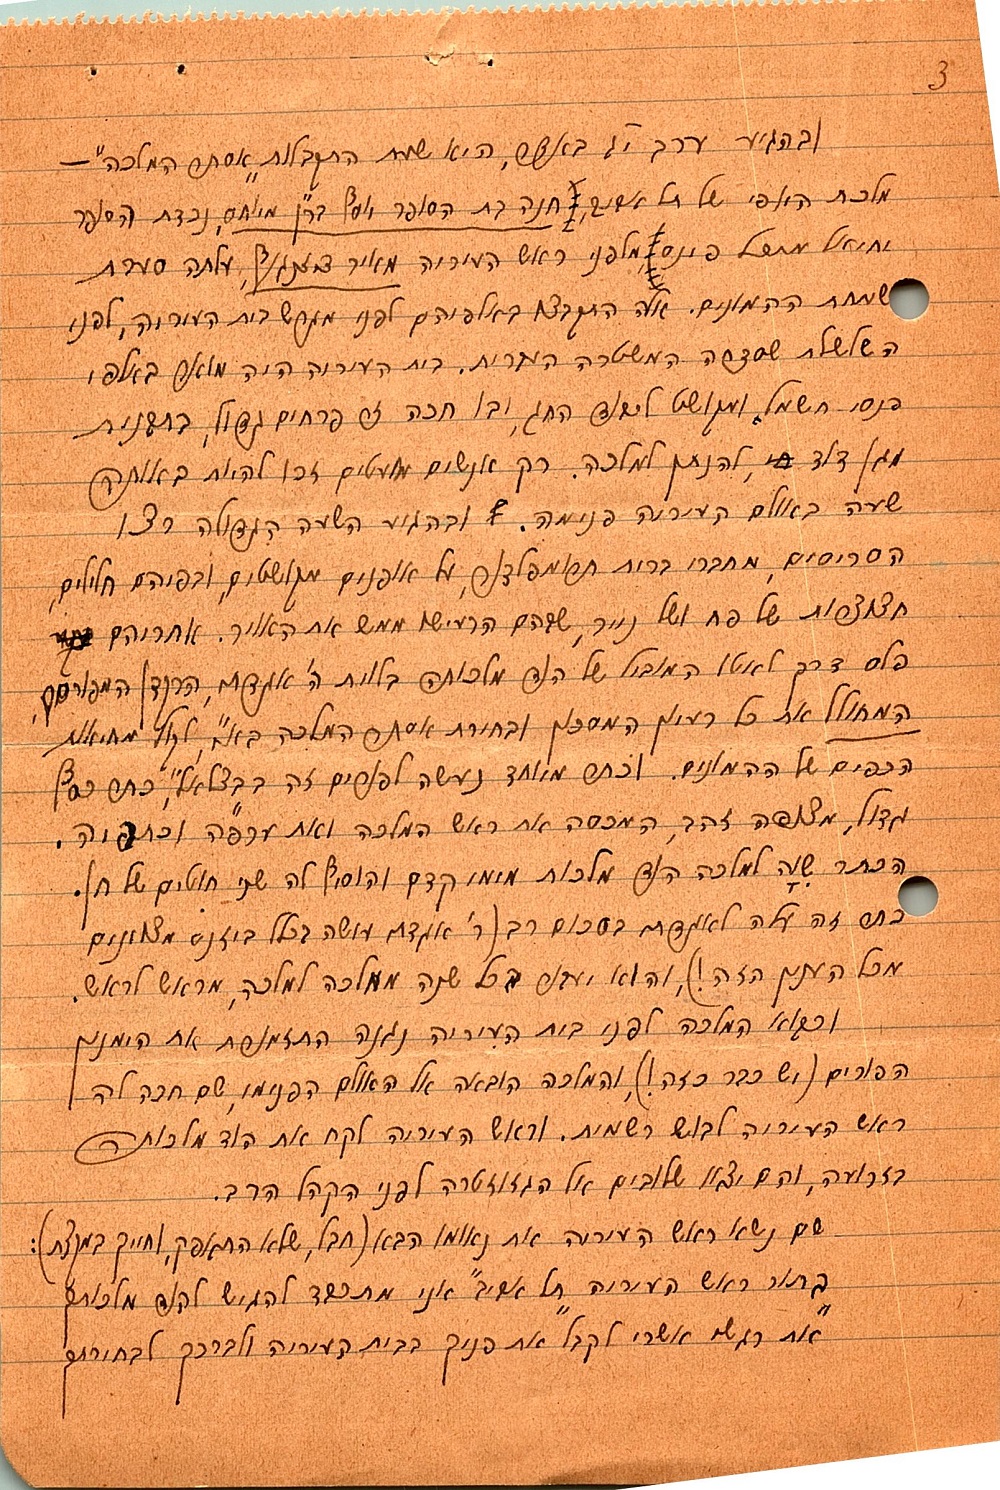 3
ובהגיע ערב י"ג באדר, היא שעת התקבלות "אסתר המלכה" –
מלכת היופי של תל אביב, חנה בת הסופר יוסף ברץ מיוחס, נכדת הסופר
יחיאל מיכל פינס מלפני ראש העיריה מאיר דיזנגוף, עלתה סערת
שמחת ההמונים. אלה התקבצו באלפיהם לפני מגרש בית העיריה, לפני
השלשלת שסדרה המשטרה העברית. בית העיריה היה מואר באלפי
פנסי חשמל, ומקושט לכבוד החג, ובו חכה זר פרחים גדול, בתבנית
מגן דוד, להנתן למלכה. רק אנשים מועטים זכו להיות באותה
שעה באולם העיריה פנימה. ובהגיע השעה הגדולה רצו
הסריסים, מחברי ברית תרומפלדור, על אופנים מקושטים, ובפיהם חלילים,
חצוצרות של פח ושל נייר, שבהם הרעישו ממש את האויר. אחריהם
פלס דרך לאיטו המוביל של הוד מלכותה בלוית ה' אגדתי, הרקדן המפורסם,
המחולל את כל רעיון המסכות ובחירת אסתר המלכה בא"י, לקול מחיאות
הכפים של ההמונים. וכתר מיוחד נעשה לפורים זה ב"בצלאל", כתר כסף
גדול, מצופה זהב, המכסה את ראש המלכה ואת ערפה וכתפיה.
הכתר שִוָה למלכה הוד מלכות מימי קדם והוסיף לה שני חוטים של חן.
כתר זה עלה לאגדתי בסכום רב (ר' אגדתי עושה בכלל ביזנס מצוינים
מכל הענין הזה!), והוא יעבור בכל שנה ממלכה למלכה, מראש לראש.
וכבוא המלכה לפני בית העיריה נגנה התזמורת את הימנון
הפורים (יש כבר כזה!), והמלכה הובאה אל האולם הפנימי, שם חכה לה
ראש העיריה לבוש רשמית. וראש העיריה לקח את הוד מלכותה
בזרועה, והם יצאו שלובים אל הגזוזטרה לפני הקהל הרב.
שם נשא ראש העיריה את נאומו הבא (חבל, שלא התאפק, וחייך במקצת):
"בתור ראש העיריה תל אביב אני מתכבד להגיש להוד מלכותך
"את רגשי אשרי לקבל את פניך בבית העיריה ולברכך לבחירתך